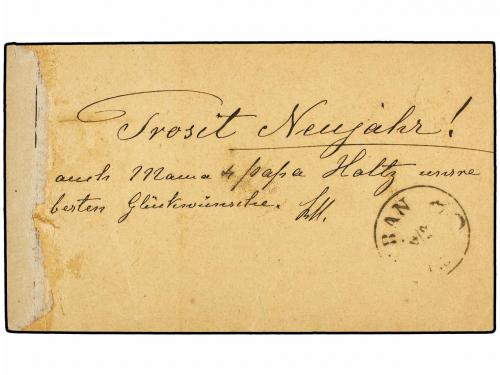 Prosit Neujahr!
auch Mama & Papa Holtz unsre
besten Glückwünsche.
BAN